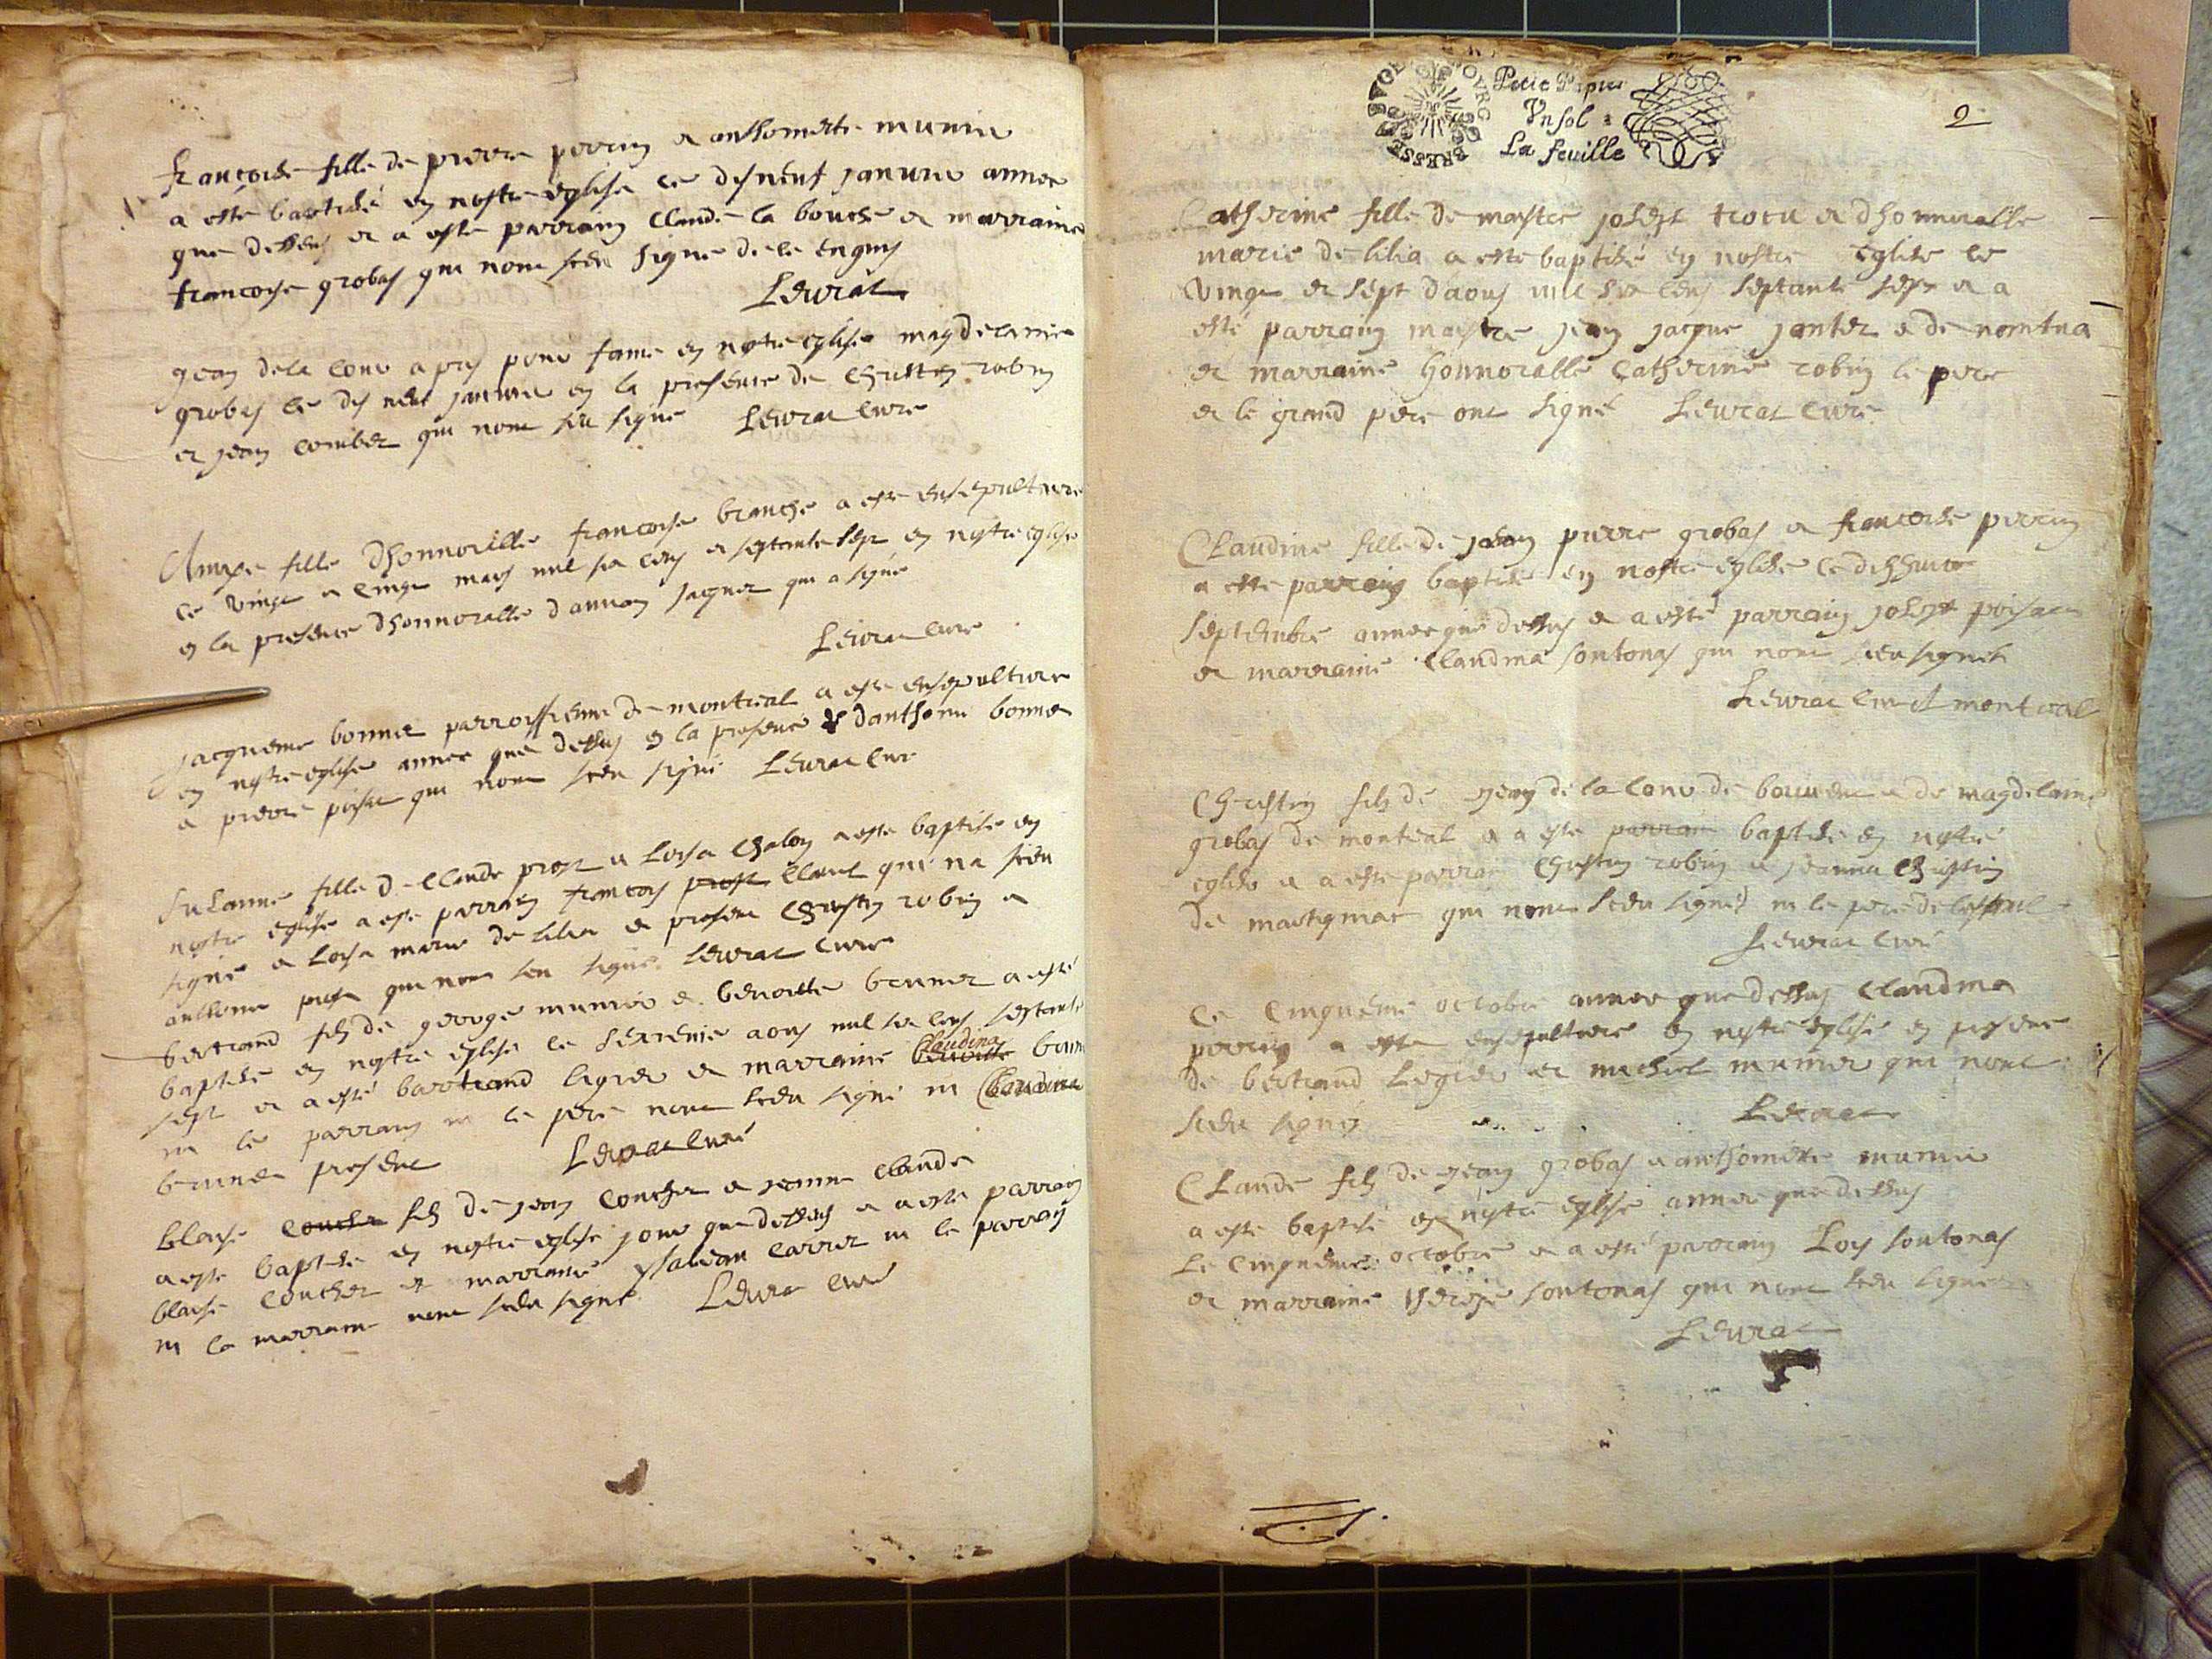 francoise fille de pierre perrin et anthomette munier
a esté baptisée en nostre eglise ce disneuf janvier annee
que dessus et a esté parrain Claude la bouche et marraine
francoise grobas qui nont sceu signé de ce enquis
Levrat
jean dela Cour a pris pour fame en nostre eglise magdelaine
grobas le dis neuf janvier en la presence de Christin robin
et jean Combet qui nont sceu signé Levrat curé
fille dhonnorable francoise branche a esté ensepulturé
ce vingt et cinq mars mil six cens et septante sept en nostre eglise
en la presence dhonnorable jaquet qui a signé
Levrat curé
jacqueme bonnet parroissienne de montreal a esté ensepulturé
en nostre eglise annee que dessus en la presence danthoine bonnet
et pierre qui nont sceu signé Levrat curé
Susanne fille de Claude prost et Loisa Chalon a esté baptisé en
nostre eglise a esté parrain francois prost qui na sceu
signé et Loisa marie de lilia et present Christin robin et
anthoine qui nont seu signé Levrat curé
bertrand filz de george munier et benoitte brunet a esté
baptisé en nostre eglise le aous mil six cens septante
Claudina
sept et a esté bartrand ligier et marraine benoitte brun
ni le parrain ni le pere nont sceu signé ni Claudina
brunet present Levrat curé
blaise Couchet filz de jean Couchet et jeanne Claude
a esté baptisé en nostre eglise jour que dessus et a esté parrain
blaise Couchet et marraine ysabeau Carret ni le parrain
ni la marraine nont sceu signé Levrat curé
BOURG BRESSE
Petit Papier
Un sol
La feuille
2
Catherine fille de maistre joseph et dhonnoralle
marie de lilia a esté baptisé en nostre eglise ce
vingt et sept daous mil six cens septante sept et a
esté parrain maistre jean jacque de nantua
et marraine honnoralle Catherine robin le pere
et le grand pere ont signé Levrat curé
Claudine fille de jean pierre grobas et francoise perrin
a esté parrain baptisé en nostre eglise ce dishuict
septembre annee que dessus et a esté parrain joseph
et marraine Claudina sontonas qui nont sceu signer
Levrat curé montreal
Christin filz de jean de la Cour de et de magdelaine
grobas de montreal et a esté parrain baptisé en nostre
eglise et a esté parrain Christin robin et jeanna Christin
de martignac qui nont sceu signé ni le pere
Levrat curé
ce cinquième octobre annee que dessus Claudina
perrin a esté ensepulturé en nostre eglise en presence
de bertrand Legier et michiel munier qui nont
sceu signé
Levrat
Claude filz de jean grobas et anthomette munier
a esté baptisé en nostre eglise annee que dessus
Le cinquieme octobre et a esté parrain Lois sontonas
et marraine sontonas qui nont sceu signer
Levrat